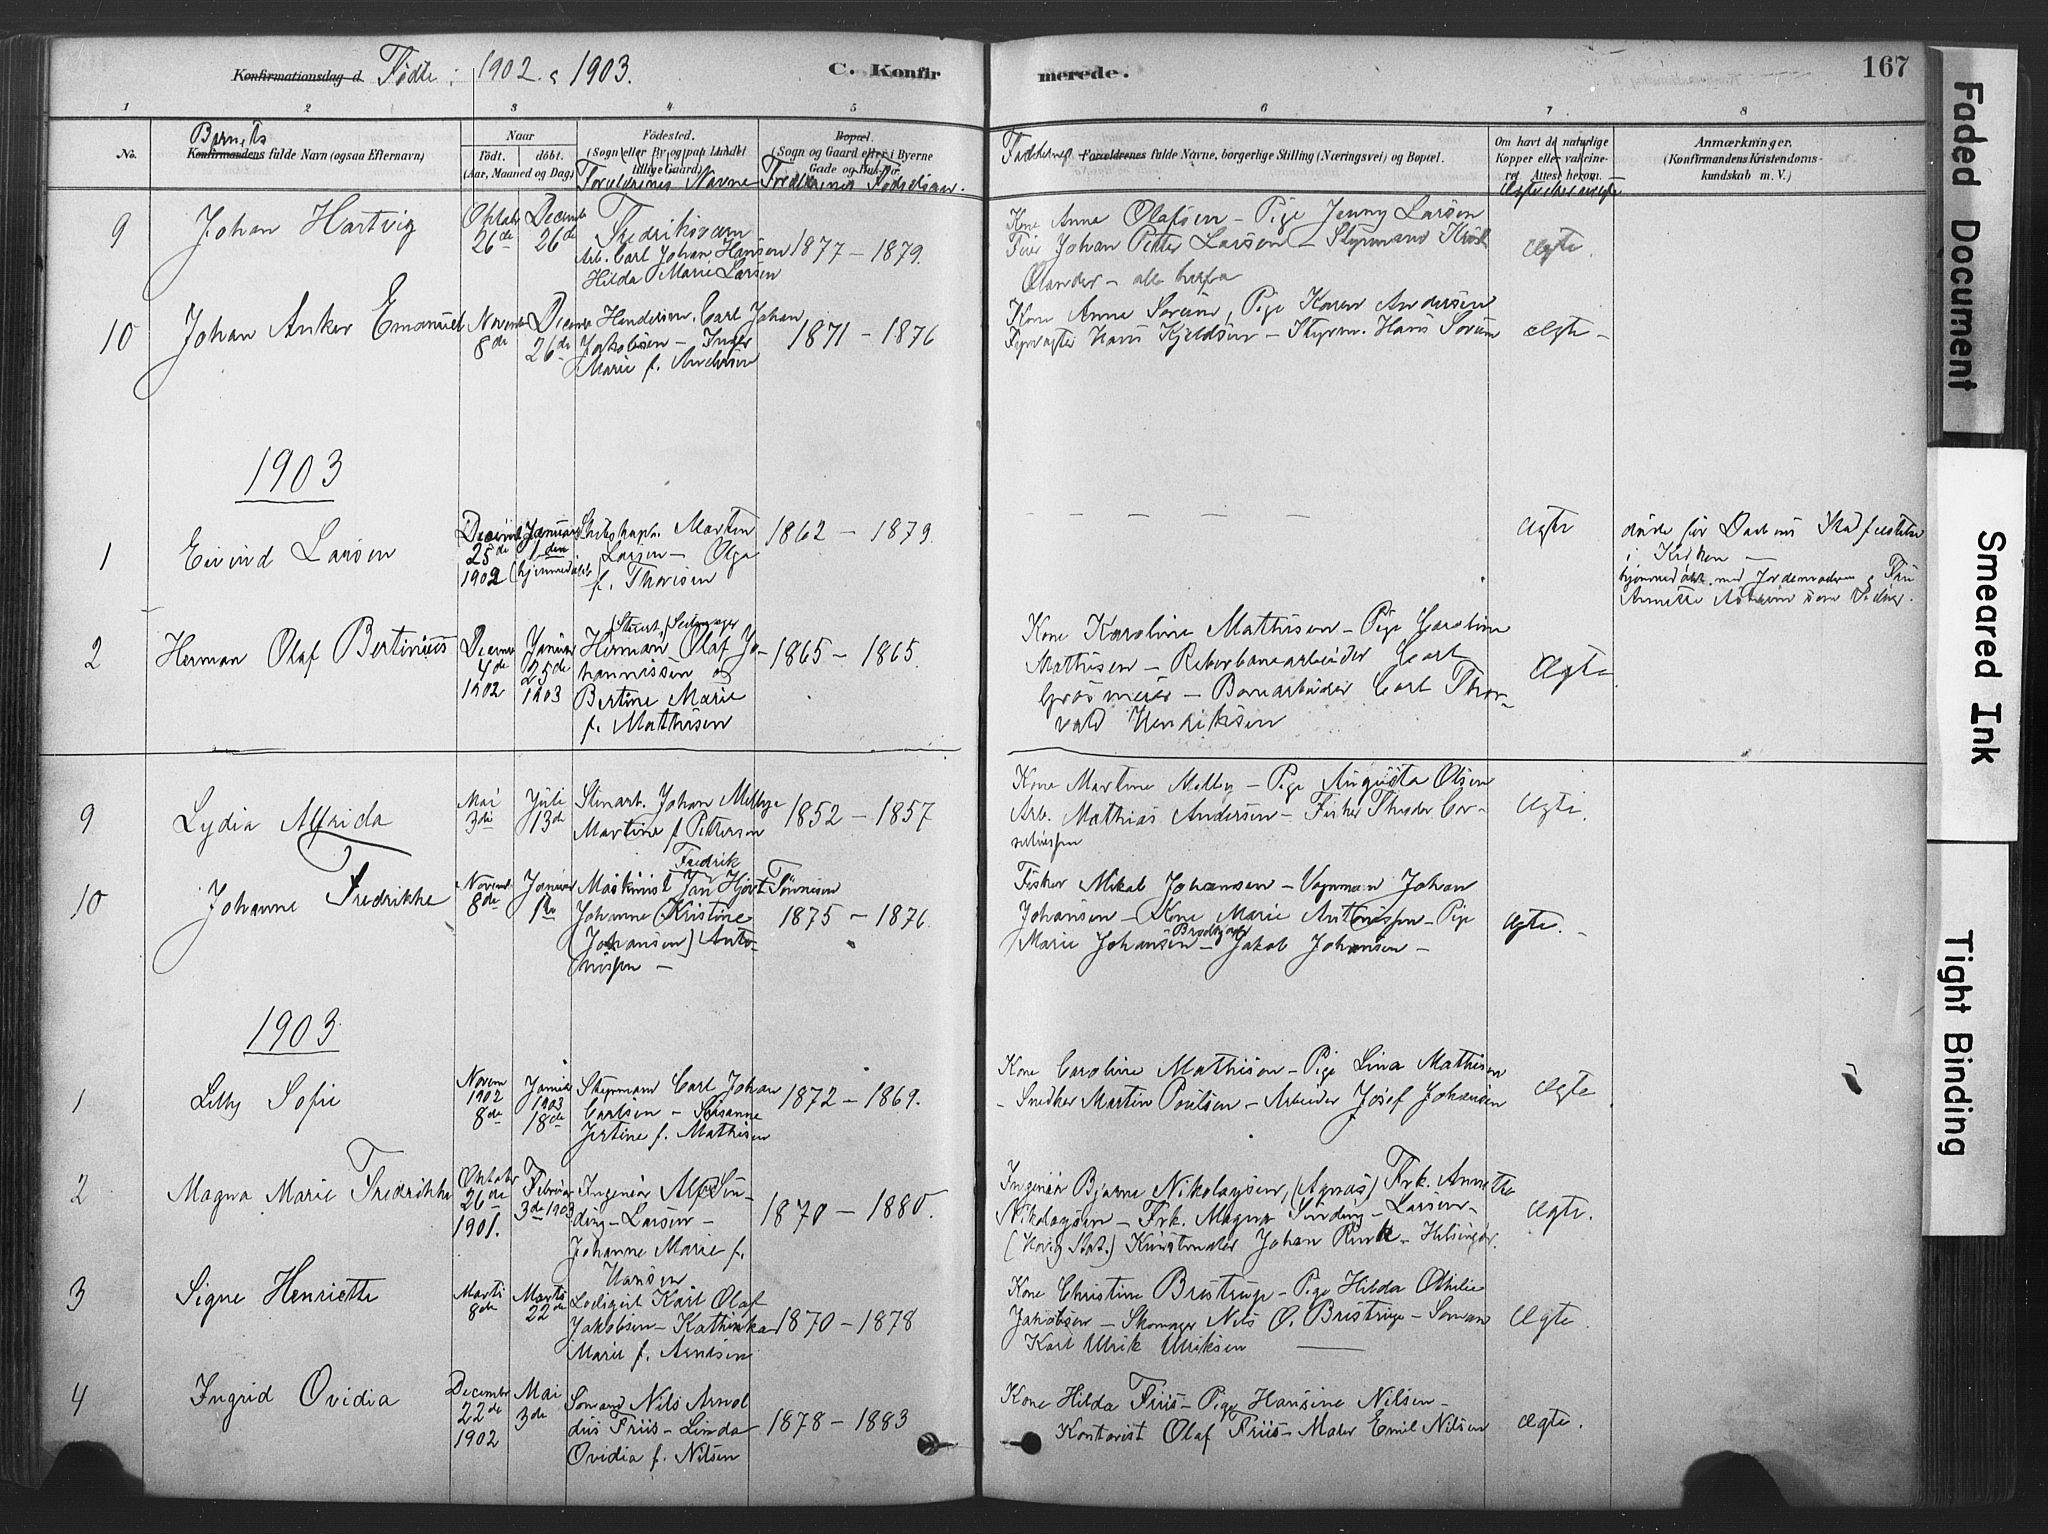 Konfirmationsdag d. Födte: 1902 & 1903.
C. Konfirmerede.
167
1 2 3 4 5 6 7 8
No.
Barnets
Konfirmandens fulde Navn (ogsaa Efternavn)
Naar
födt. döbt.
(Aar, Maaned og Dag)
Födested.
(Sogn eller By og paa Landet
tillige Gaard)
Forældrenes Navne
Bopæl.
(Sogn og Gaard eller i Byerne
Gade og
Forældrenes Födselsaar.
Faddernes Forældrenes fulde Navne, borgerlige Stilling (Næringsvei) og Bopæl.
Om havt de naturlige
Kopper eller vaccine-
ret. Attest herom.
Ægte eller uægte
Anmærkninger.
(Konfirmandens Kristendoms-
kundskab m. V.)
9 Johan Hartvig
Oktober 26de
Decembr 26de
Fredriksværn
Arb. Carl Johan Hansen
Hilda Marie Larsen
1877 – 1879.
Kone Anna Olafsen – Pige Jenny Larsen
Johan Petter Larsen – Styrmand
Olander – alle herfra
Ægte.
10 Johan Anker Emanuel
Novembr 8de
Decembr 26de
Carl Johan
Jakobsen – Inger
Marie f. Andersen
1871 – 1876
Kone Anna Sörum, Pige Karen Andersen
Fyrvagter Hans Kjeldsen – Styrm. Hans Sörum
Ægte –
1903
1 Eivind Larsen
Decembr 25de 1902
Januar 1den (hjemmedöbt)
Skibskapt. Martin
Larsen – Olga
f. Thorisen
1862 – 1879.
– – – – –
Ægte
döde för Daabens Stadfæstelse
i Kirken –
hjemmedöbt med Jordemoderen & Frk.
Annette som Vidner.
2 Herman Olaf Bertinius
Decembr 4de 1902
Januar 25de 1903
Herman Olaf Jo-
hannissen og
Bertine Marie
f. Mathisen
1865 – 1865.
Kone Karoline Mathisen – Pige Caroline
Mathisen – Reberbanearbeider Carl
Grosmeier – Banearbeider Carl Thor-
vald Henriksen
Ægte
9 Lydia Alfrida
Mai 3die
Juli 13de
Stenarb. Johan Melbye
Martine f. Pettersen
1852 – 1857
Kone Martine Melby – Pige Augusta Olsen
Arb. Mathias Andersen – Fisker Theodor Cor-
neliussen
Ægte.
10 Johanne Fredrikke
Novembr 8de
Januar 1ste
Fredrik
Maskinist Jan Hjort Tönnisen
Johanne Kristine
(Johansen) Anto-
nissen –
1875 – 1876.
Fisker Mikal Johansen – Vognman Johan
Johansen – Kone Marie Antonissen – Pige
Marie Johansen – Jakob Johansen –
Ægte. –
1903
1 Lilly Sofie
Novem 1902 8de
Januar 1903 18de
Styrmand Carl Johan
Carlsen – Susanne
Jertine f. Mathisen
1872 – 1869.
Kone Caroline Mathisen – Pige Lina Mathisen
– Snedker Martin Poulsen – Arbeider Josef Johansen
Ægte
2 Magna Marie Fredrikke
Oktober 26de 1901.
Februar 3de 1903
Ingeniör Alf Sin-
ding-Larsen –
Johanne Marie f.
Hansen
1870 – 1880.
Ingeniör Bjarne Nikolaysen, (Agnæs) Frk. Annette
Nikolaysen – Frk. Magna Sinding-Larsen –
(Hövig Stat.) Kunstmaler Johan Runk – Helsingör.
Ægte.
3 Signe Henriette
Marti 8de
Marts 22de
Lodsgut Karl Olaf
Jakobsen – Kathinka
Marie f. Arntsen
1870 – 1878
Kone Christine Bristrup – Pige Hilda Othilie
Jakobsen – Skomager Nils O. Bristrup – Sömand
Karl Ulrik Ulriksen ——
Ægte.
4 Ingrid Ovidia
Decembr 22de 1902
Mai 3de
Sömand Nils Arnol
dus Friis – Linda
Ovidia f. Nilsen
1878 – 1883
Kone Hilda Friis – Pige Hansine Nilsen –
Kontorist Olaf Friis – Maler Emil Nilsen
Ægte.
Faded Document
Smeared Ink
Tight Binding